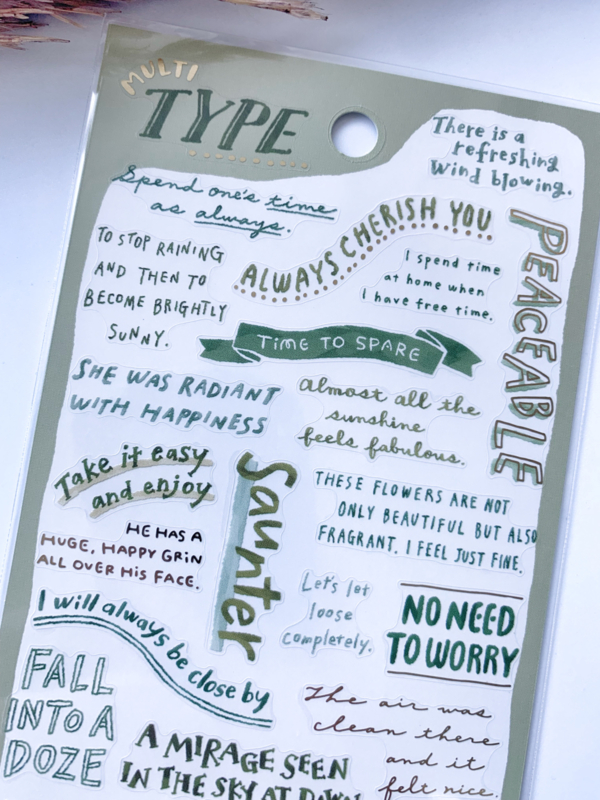 MULTI
TYPE
There is a
refreshing
wind blowing.
Spend one's time
as always.
ALWAYS CHERISH YOU
TO STOP RAINING
AND THEN TO
BECOME BRIGHTLY
SUNNY.
I spend time
at home when
I have free time.
PEACEABLE
TIME TO SPARE
SHE WAS RADIANT
WITH HAPPINESS
almost all the
sunshine
feels fabulous.
Take it easy
and enjoy
Saunter
THESE FLOWERS ARE NOT
ONLY BEAUTIFUL BUT ALSO
FRAGRANT. I FEEL JUST FINE.
HE HAS A
HUGE, HAPPY GRIN
ALL OVER HIS FACE.
Let's let
loose
completely.
NO NEED
TO WORRY
I will always be close by
FALL
INTO A
DOZE
The air was
clean there
and it
felt nice.
A MIRAGE SEEN
IN THE SKY AT DAWN